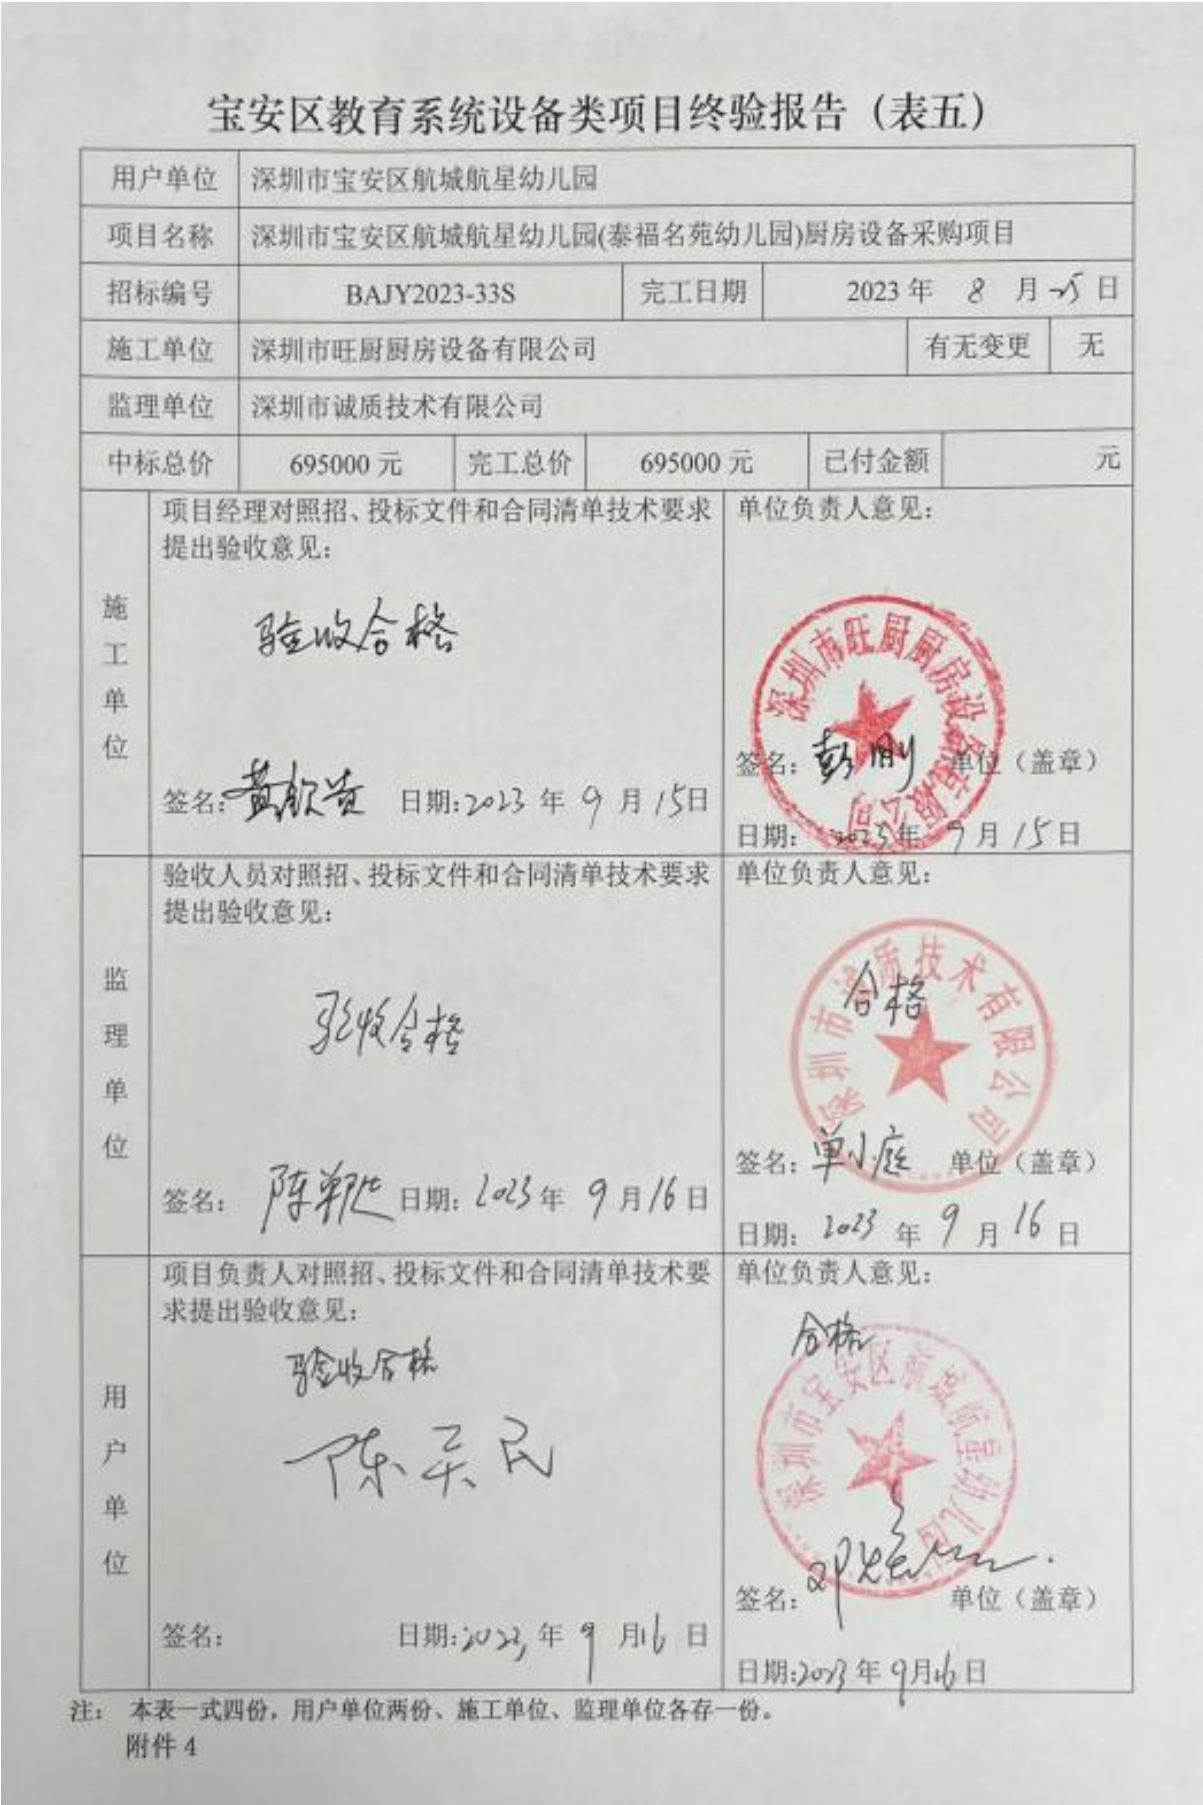 宝安区教育系统设备类项目终验报告（表五）
用户单位 深圳市宝安区航城航星幼儿园
项目名称 深圳市宝安区航城航星幼儿园(泰福名苑幼儿园)厨房设备采购项目
招标编号 BAJY2023-33S 完工日期 2023年 8 月 25 日
施工单位 深圳市旺厨厨房设备有限公司 有无变更 无
监理单位 深圳市诚质技术有限公司
中标总价 695000 元 完工总价 695000 元 已付金额 元
施工单位
项目经理对照招、投标文件和合同清单技术要求
提出验收意见：
验收合格
签名： 日期:2023 年 9 月 15日
单位负责人意见：
深圳市旺厨厨房设备有限公司
签名：彭刚 单位（盖章）
日期： 2023年 9月 15日
监理单位
验收人员对照招、投标文件和合同清单技术要求
提出验收意见：
验收合格
签名： 日期：2023 年 9 月 16 日
单位负责人意见：
合格
深圳市诚质技术有限公司
签名：单小庭 单位（盖章）
日期： 2023 年 9 月 16 日
用户单位
项目负责人对照招、投标文件和合同清单技术要
求提出验收意见：
验收合格
签名： 日期:2023 年 9 月 16 日
单位负责人意见：
合格
深圳市宝安区航城航星幼儿园
签名： 单位（盖章）
日期:2023 年 9月16日
注： 本表一式四份，用户单位两份、施工单位、监理单位各存一份。
附件 4